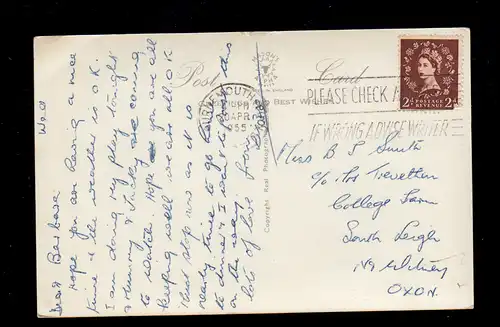 Wed
Dear Barbara
Hope you are having a nice
time & the weather is O.K.
I am doing my play tonight
& Mummy & are coming
to watch. Hope you are all
keeping well, we are all O.K
Must stop now as it is
nearly time to go
to dinner & I want to this
on the way.
lots of love from
Post Card
BEST WI
Copyright Real Photograph
BOURNEMOUTH
PM
APR
1955
PLEASE CHECK A
IF WRONG ADVISE WRITER
2d POSTAGE REVENUE 2d
Miss B J Smith
c/o Mrs Trevetten
College Farm
South Leigh
Nr Witney
OXON.